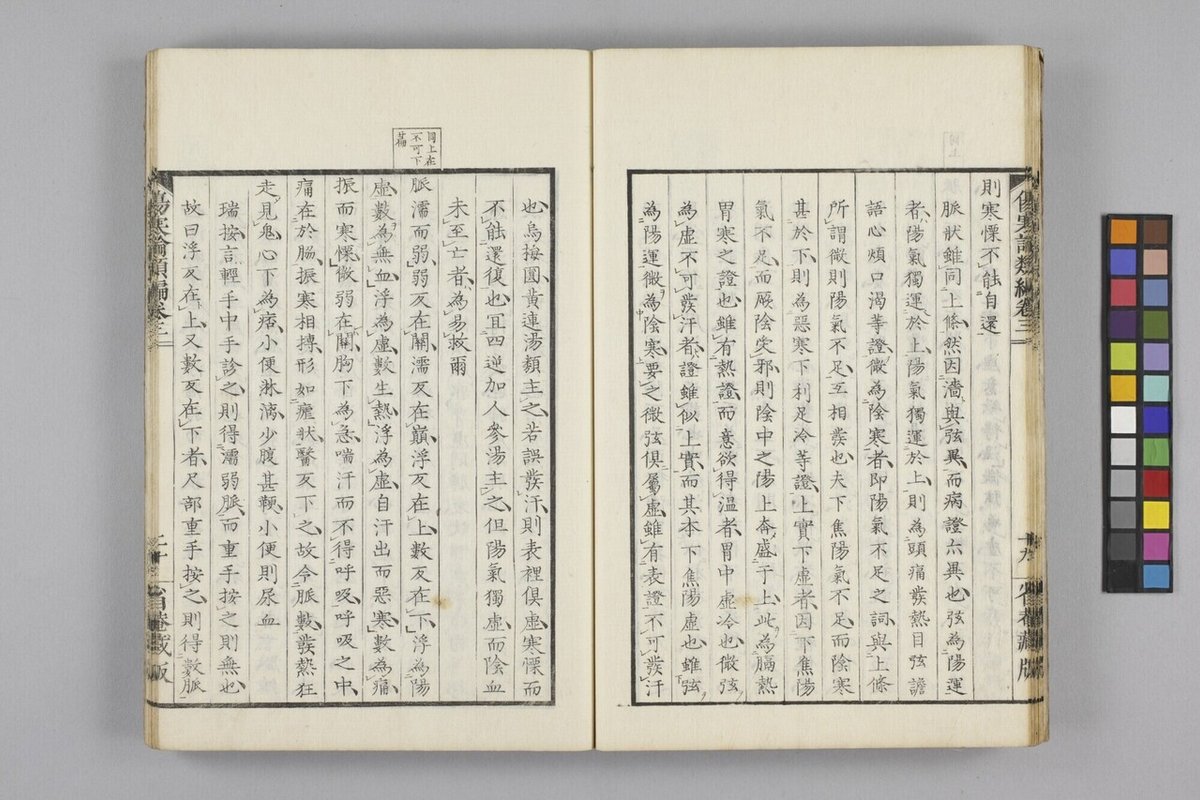 則寒慄不能自還
脈狀雖同上條然因濇與弦異而病證亦異也弦為陽運
者陽氣獨運於上陽氣獨運於上則為頭痛發熱目弦譫
語心煩口渴等證微為陰寒者即陽氣不足之詞與上條
所謂微則陽氣不足互相發也夫下焦陽氣不足而陰寒
甚於下則為惡寒下利足冷等證上實下虛者因下焦陽
氣不足而厥陰突邪則陰中之陽上奔盛于上此為膈熱
胃寒之證也雖有熱證而意欲得溫者胃中虛冷也微弦
為虛不可發汗者證雖似上實而其本下焦陽虛也雖弦
為陽運微為陰寒要之微弦俱屬虛雖有表證不可發汗
傷寒論類編卷三
十九
必有齋藏版
也烏梅圓黃連湯類主之若誤發汗則表裡俱虛寒慄而
不能還復也宜四逆加人參湯主之但陽氣獨虛而陰血
未至亡者為易救爾
同上在
不可下
篇
脈濡而弱弱反在關濡反在巔浮反在上數反在下浮為陽
虛數為無血浮為虛數生熱浮為虛自汗出而惡寒數為痛
振而寒慄微弱在關胸下為急喘汗而不得呼吸呼吸之中
痛在於脇振寒相搏形如瘧狀醫反下之故令脈數發熱狂
走見鬼心下為痞小便淋漓少腹甚鞕小便則尿血
瑞按言輕手中手診之則得濡弱脈而重手按之則無也
故曰浮反在上又數反在下者尺部重手按之則得數脈
傷寒論類編卷三
二十